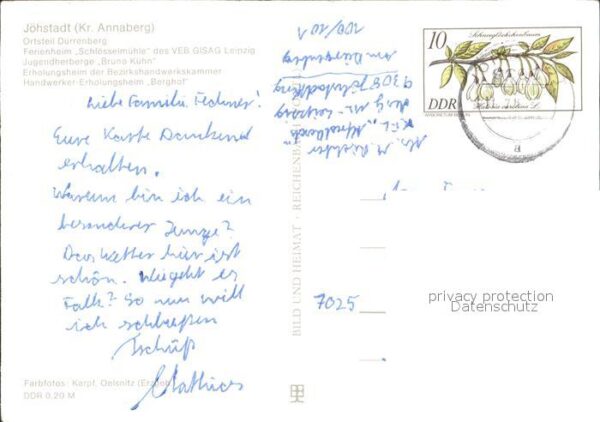 Jöhstadt (Kr. Annaberg)
Ortsteil Dürrenberg
Ferienheim „Schlösselmühle" des VEB GISAG Leipzig
Jugendherberge „Bruno Kühn"
Erholungsheim der Bezirkshandwerkskammer
Handwerker-Erholungsheim „Berghof"
Liebe Familie Federer!
Eure Karte Dankend
erhalten.
Warum bin ich ein
besonderer Junge?
Das Wetter hier ist
schön. Wie geht es
Falk? So nun will
ich schließen
Tschüß
Mathias
Farbfotos: Karpf, Oelsnitz (Erzgeb.)
DDR 0,20 M
BILD UND HEIMAT · REICHENBACH
M.
9308
Am Dürrenberg
100/101
10
DDR
7025
privacy protection
Datenschutz